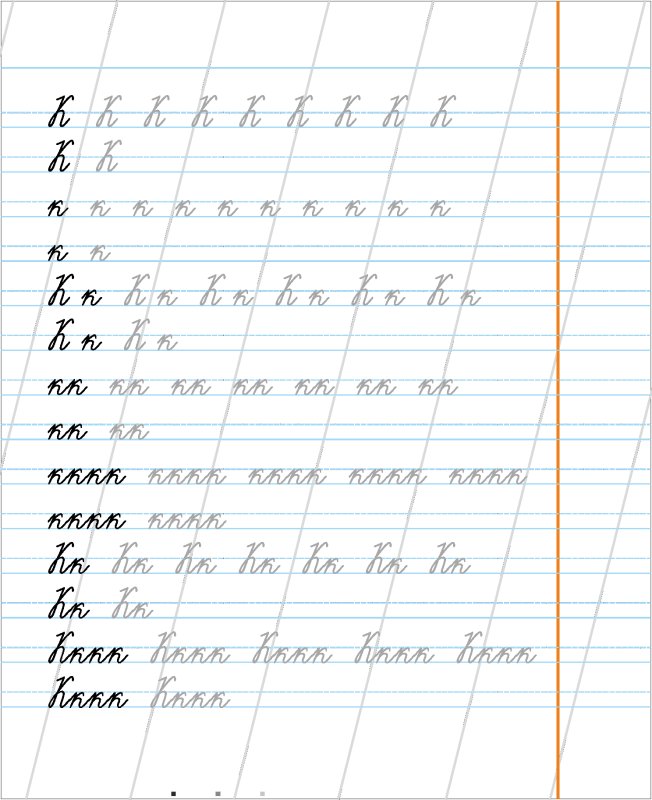 К К К К К К К К К
К К
к к к к к к к к к к
к к
К к К к К к К к К к К к
К к К к
кк кк кк кк кк кк кк
кк кк
кккк кккк кккк кккк кккк
кккк кккк
Кк Кк Кк Кк Кк Кк Кк
Кк Кк
Кккк Кккк Кккк Кккк Кккк
Кккк Кккк